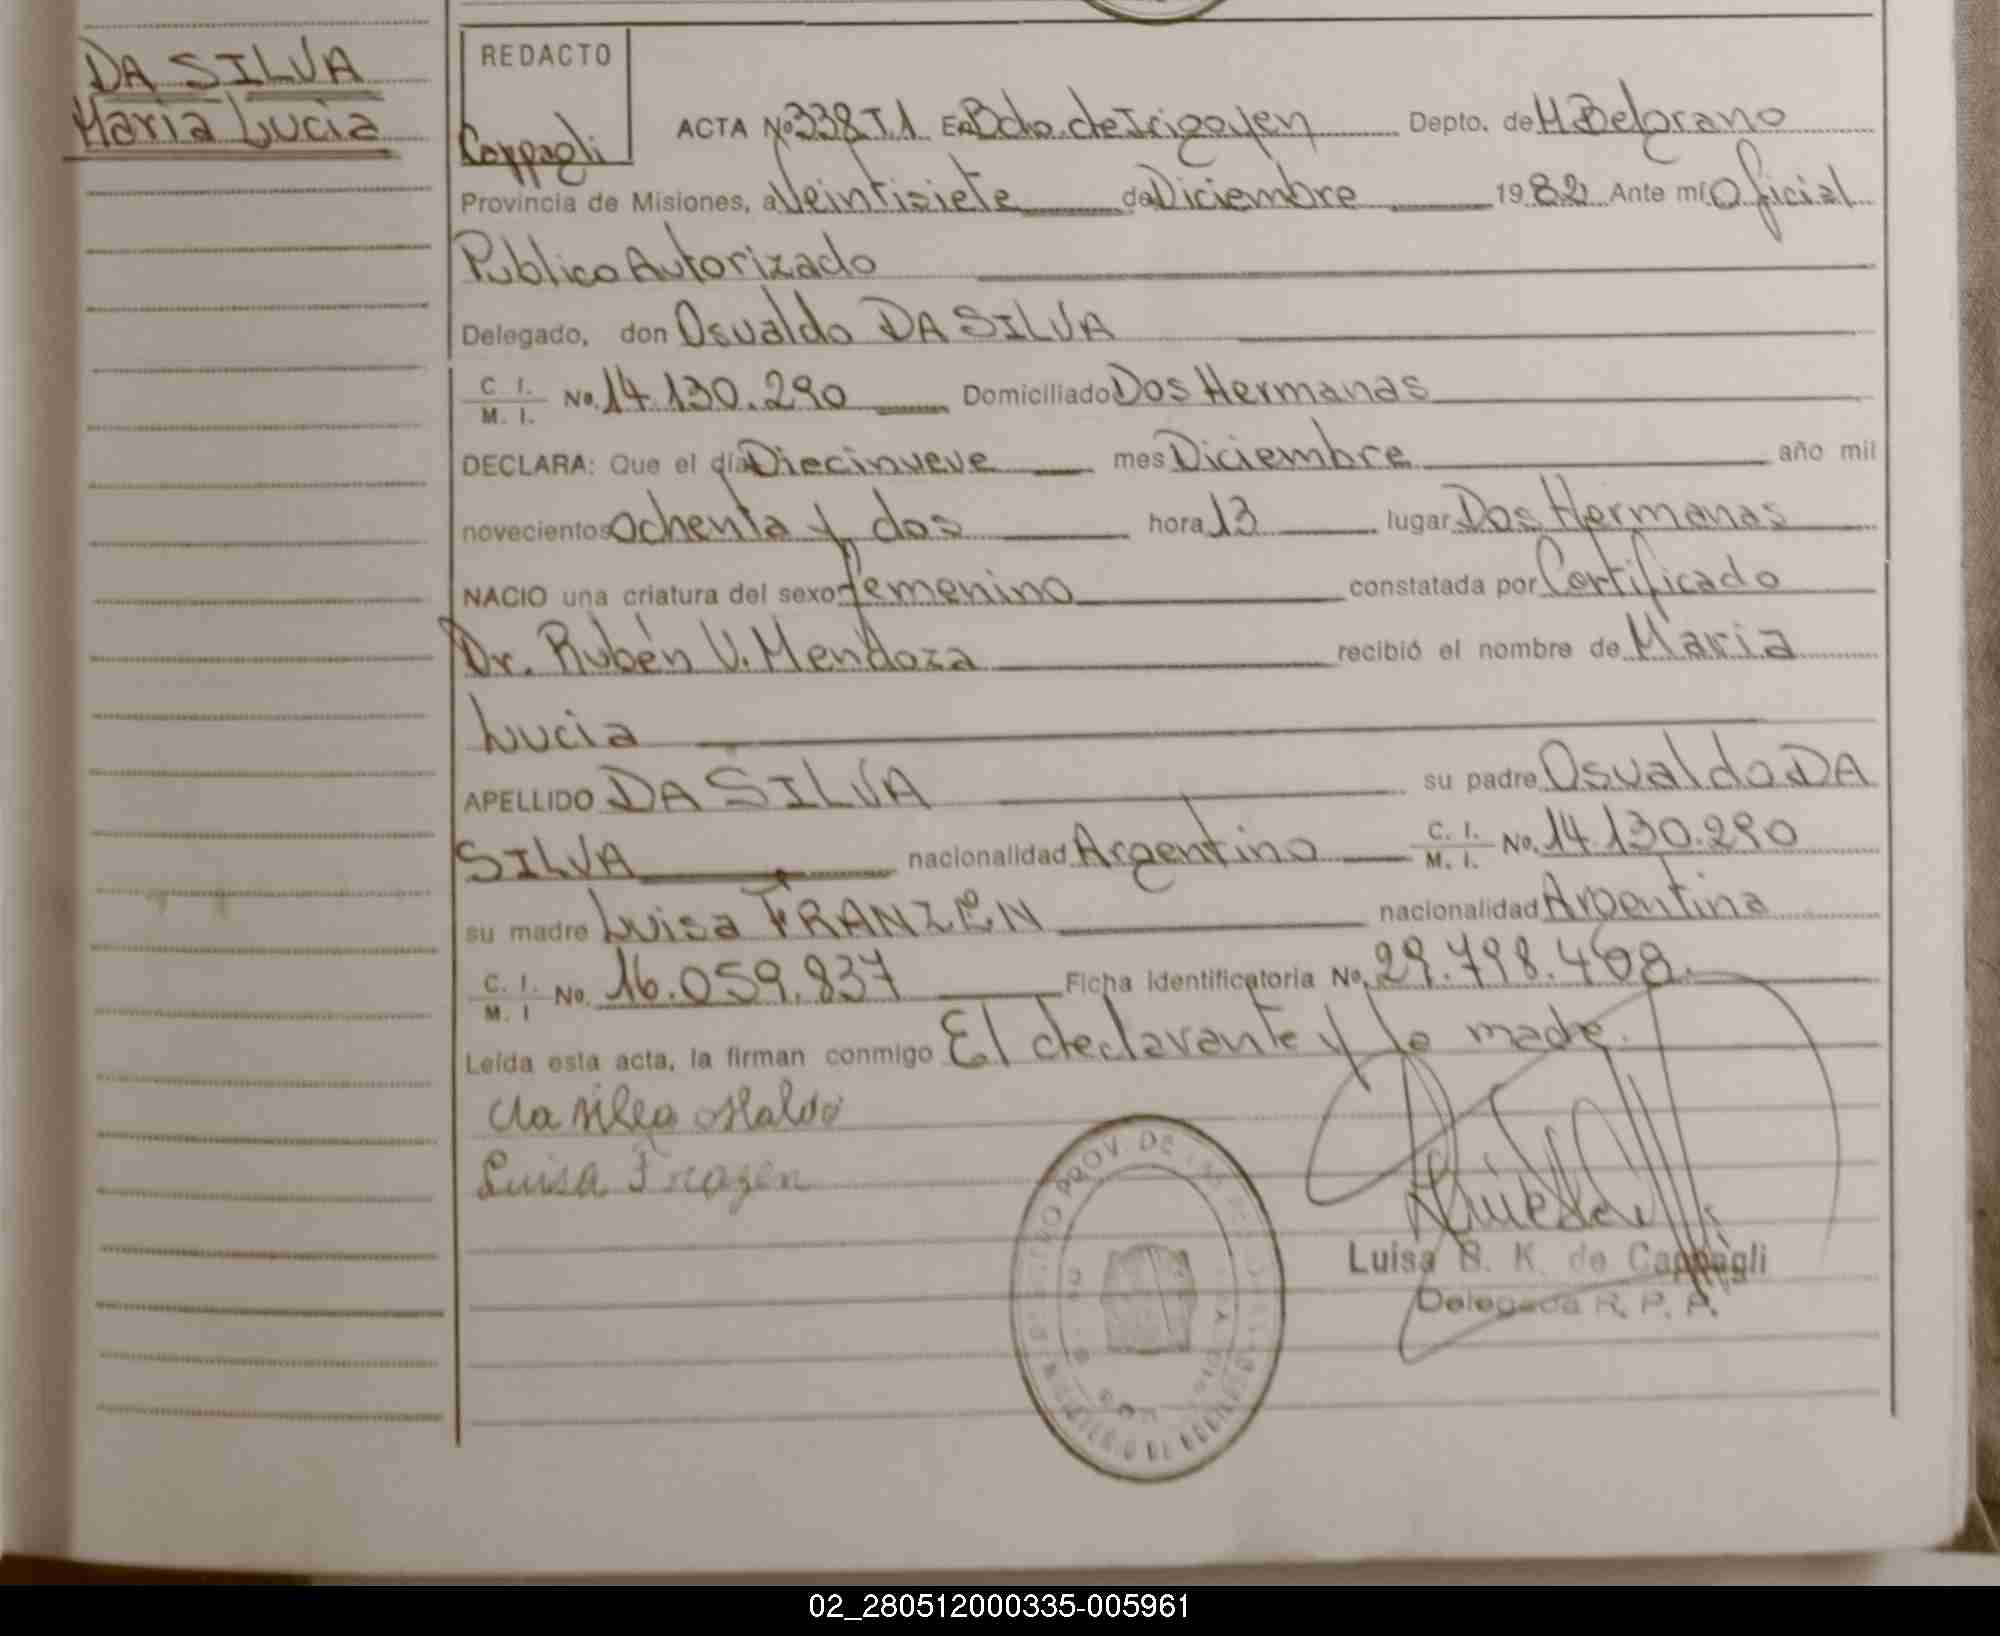 DA SILVA
Maria Lucia
REDACTO
Cappagli
ACTA No 338 T.1 En Bdo. de Irigoyen Depto. de M Belgrano
Provincia de Misiones, a Veintisiete de Diciembre 1982 Ante mí Oficial
Publico Autorizado
Delegado, don Osvaldo DA SILVA
C. I.
M. I. No. 14.130.290 Domiciliado Dos Hermanas
DECLARA: Que el día Diecinueve mes Diciembre año mil
novecientos ochenta y dos hora 13 lugar Dos Hermanas
NACIO una criatura del sexo femenino constatada por Certificado
Dr. Rubén V. Mendoza recibió el nombre de Maria
Lucia
APELLIDO DA SILVA su padre Osvaldo DA
SILVA nacionalidad Argentino C. I. M. I. No. 14.130.290
su madre Luisa FRANZEN nacionalidad Argentina
C. I.
M. I No. 16.059.837 Ficha identificatoria No. 29.798.408.
Leída esta acta, la firman conmigo El declarante y la madre.
da silva
Luisa Frazen
PROV. DE
Luisa S. K. de Cappagli
Delegada R. P. P.
02_280512000335-005961